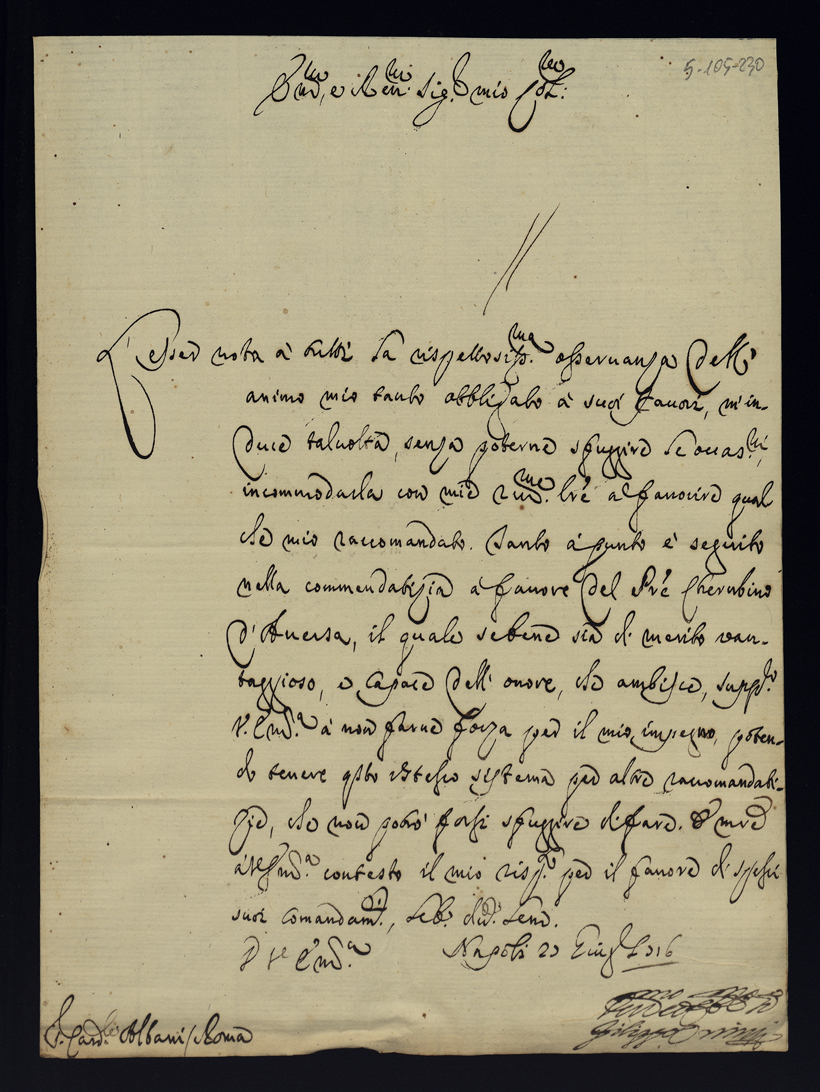 5-105-230
Em.mo, e Rev.mo Sig.r mio Col.mo:
L'esser nota à tutti la rispettosiss.ma osservanza dell'
animo mio tanto obbligato à suoi favori, m'in-
duce talvolta, senza poterne sfuggire le occas.ni,
incommodarla con mie um.me lr̃e à favorire qual
che mio raccomandato. Tanto à punto è seguito
nella commendatizia à favore del Prẽ Cherubino
d'Aversa, il quale sebene sia di merito van-
taggioso, e capace dell'onore, che ambisce, supp.co
V. Em.a à non farne forza per il mio impegno, poten-
do tenere q̃sto istesso sistema per altre raccomandati-
zie, che non potrò forsi sfuggire di fare. E mr̃e
à V. Em.a contesto il mio risp.o per il favore di spessi
suoi comandam.ti,
D V. Em.a Napoli 23 Giug.o 1716
S. Card.le Albani / Roma